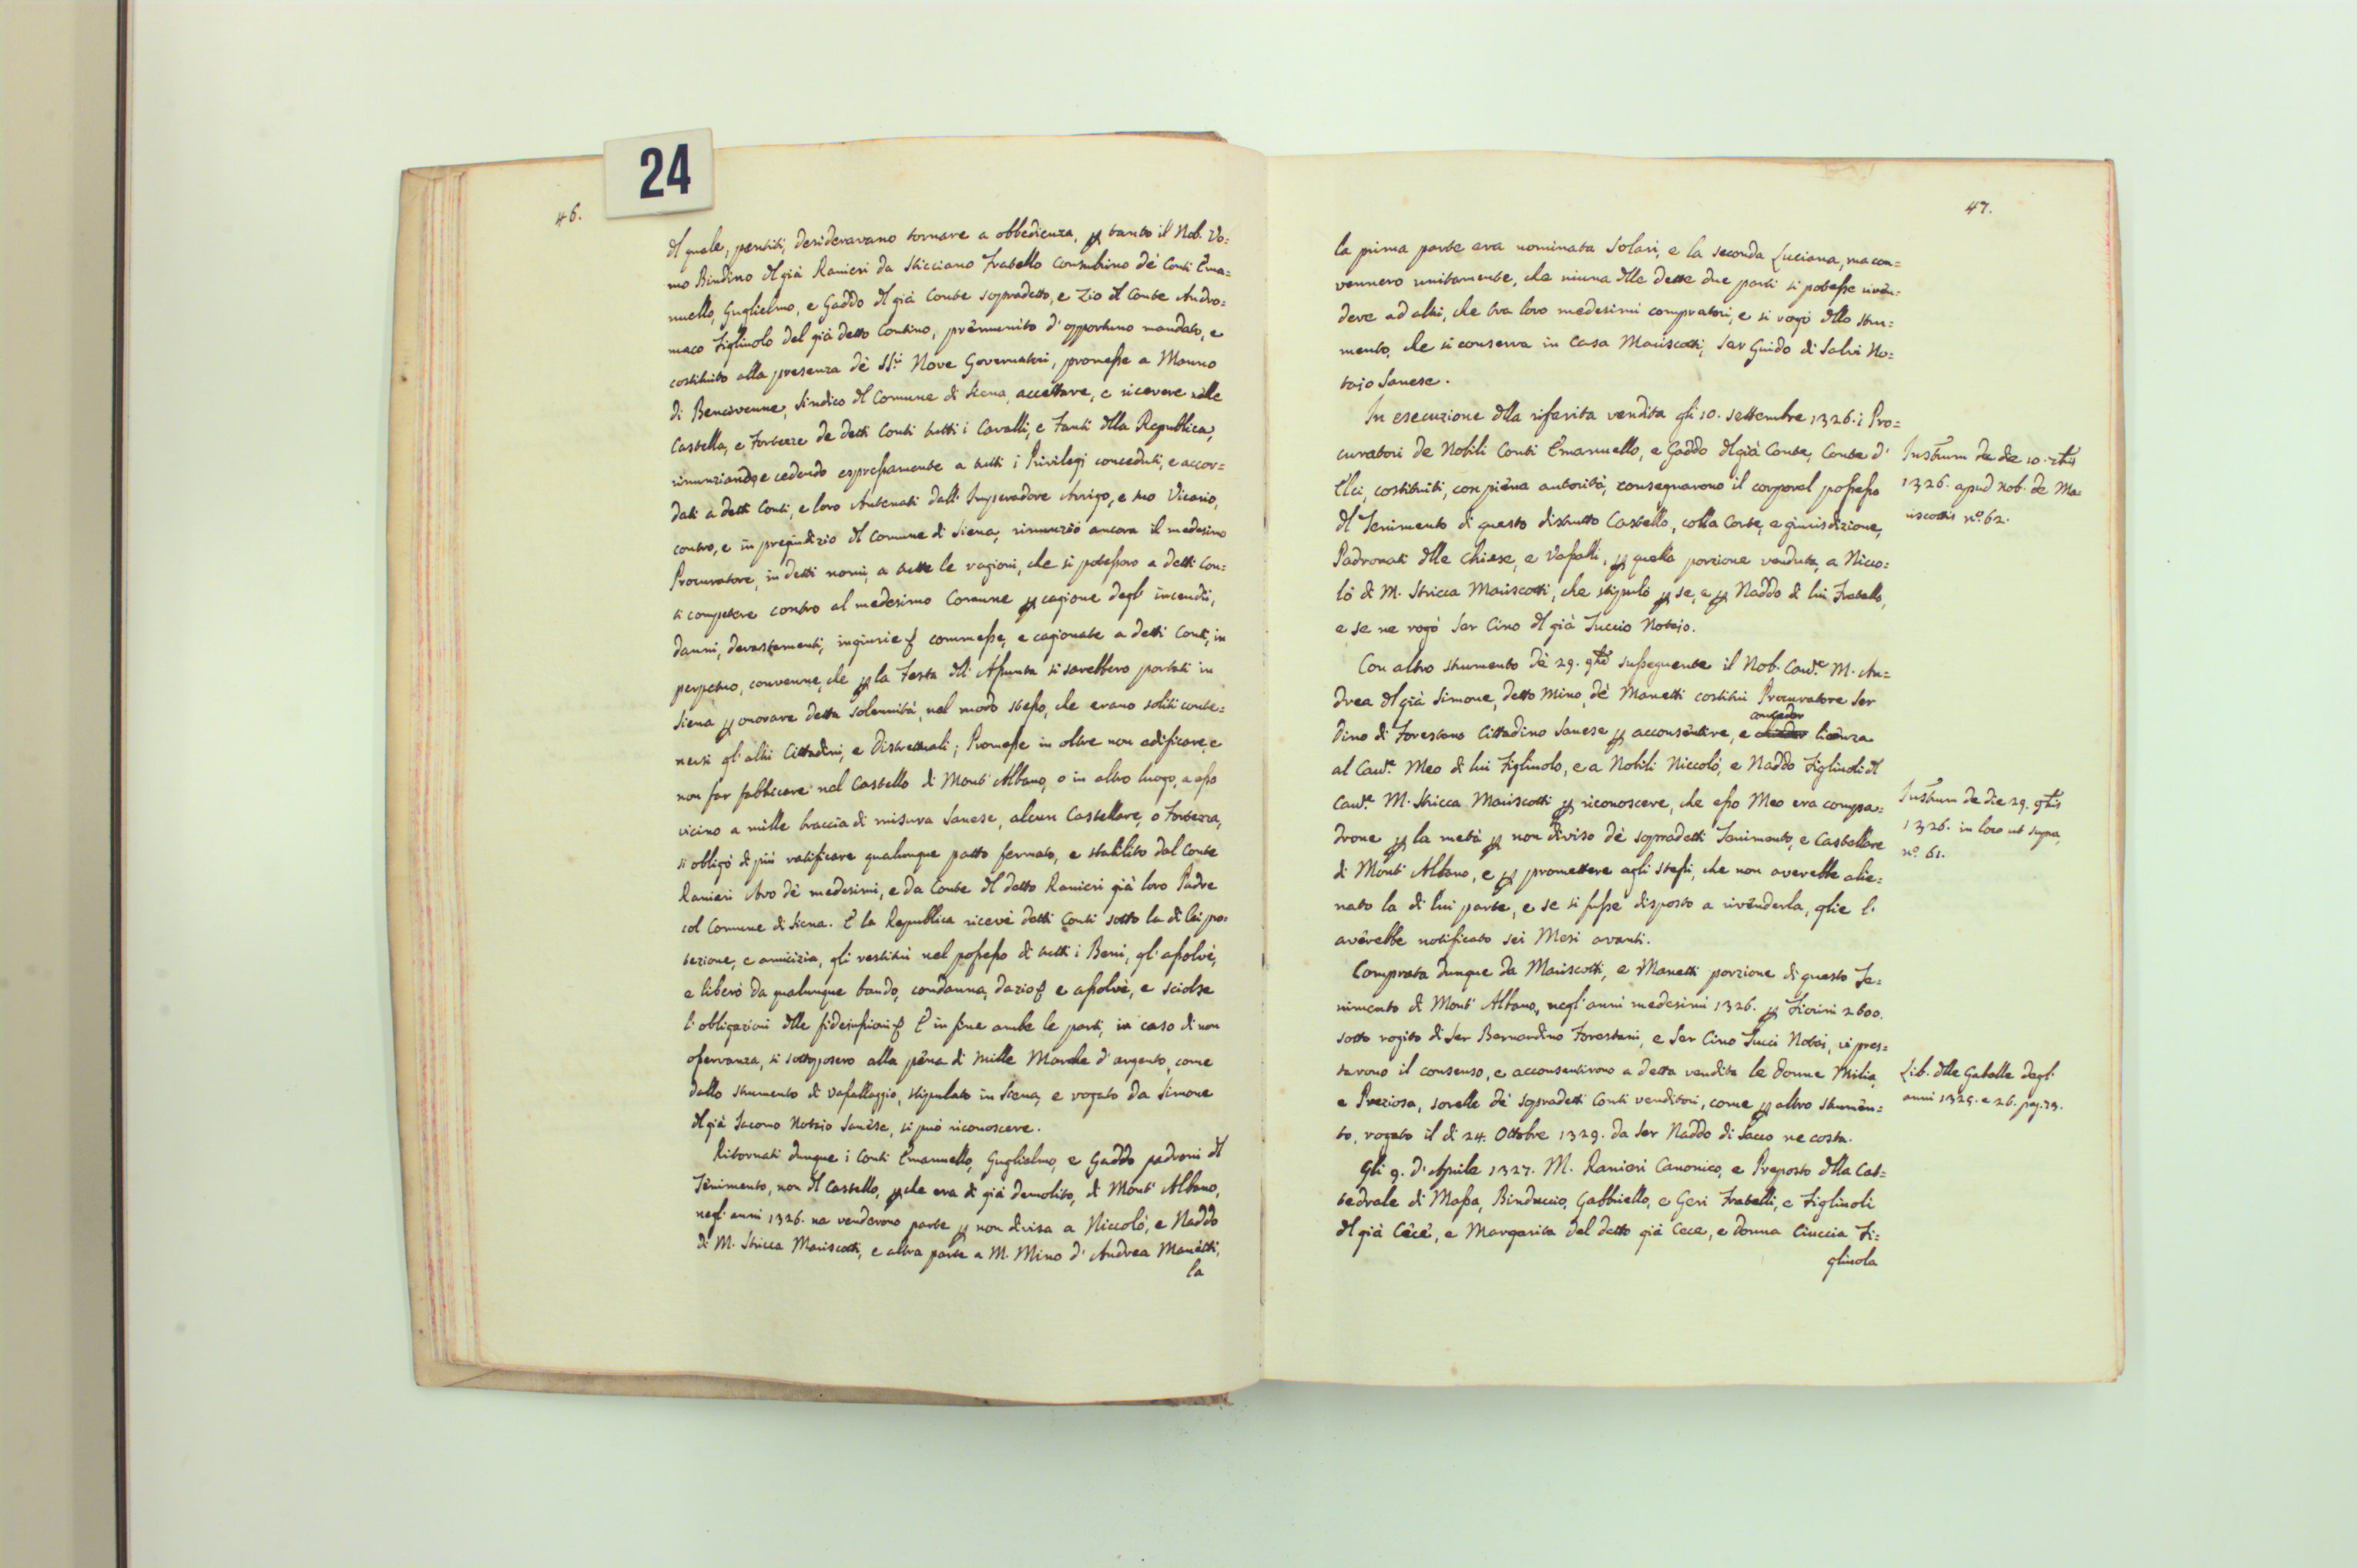 24
46.
del quale, pentiti, desideravano tornare a obbedienza, per tanto il Nob. Uo=
mo Bindino del già Ranieri da Sticciano Fratello Consubrino dè Conti Ema=
nuello, Guglielmo, e Gaddo del già Conte sopradetto, e Zio del Conte Andro=
maco Figliuolo del già detto Contino, premunito d' opportuno mandato, e
costituito alla presenza dè SS.ri Nove Governatori, promesse a Manno
di Bencivenne, Sindico del Comune di Siena, accettare, e ricevere nelle
Castella, e Fortezze de detti Conti tutti i Cavalli, e Fanti della Republica,
rinunziando, e cedendo espressamente a tutti i Privilegi conceduti, e accor=
dati a detti Conti, e loro Antenati dall' Imperadore Arrigo, e suo Vicario,
contro, e in pregiudizio del Comune di Siena, rinunziò ancora il medesimo
Procuratore, in detti nomi, a tutte le ragioni, che si potessero a detti Con=
ti competere contro al medesimo Comune per cagione degl' incendii,
danni, devastamenti, ingiurie &c commesse, e cagionate a detti Conti, in
perpetuo, convenne, che per la Festa dell' Assunta si sarebbero portati in
Siena per onorare detta solennità, nel modo stesso, che erano soliti conte=
nersi gl' altri Cittadini, e Distrettuali; Promesse in oltre non edificare, e
non far fabbricare nel Castello di Mont' Albano, o in altro luogo, a esso
vicino a mille braccia di misura Sanese, alcun Castellare, o Fortezza,
si obligò di più ratificare qualunque patto fermato, e stabilito dal Conte
Ranieri Avo dè medesimi, e da Conte del detto Ranieri già loro Padre
col Comune di Siena. E la Republica ricevè detti Conti sotto la di lei pro=
tezione, e amicizia, gli restituì nel possesso di tutti i Beni, gl' assolvè,
e liberò da qualunque bando, condanna, dazio &c e assolvè, e sciolse
l' obligazioni delle fideiussioni &c E in fine ambe le parti, in caso di non
osservanza, si sottoposero alla pena di mille Marche d' argento, come
dallo strumento di vassallaggio, stipulato in Siena, e rogato da Simone
del già Jacomo Notaio Sanese, si può riconoscere.
Ritornati dunque i Conti Emanuello, Guglielmo, e Gaddo padroni del
Tenimento, non del Castello, perche era di già demolito, di Mont' Albano,
negl' anni 1326. ne venderono parte per non divisa a Niccolò, e Naddo
di M. Stricca Mariscotti, e altra parte a M. Mino d' Andrea Manetti,
la
47.
la prima parte era nominata Solari, e la seconda Luciana, ma con=
vennero unitamente, che niuna delle dette due parti si potesse riven=
dere ad altri, che tra loro medesimi compratori, e si rogò dello stru=
mento, che si conserva in Casa Mariscotti, Ser Guido di Salvi No=
taio Sanese.
In esecuzione della riferita vendita gli 10. Settembre 1326. i Pro=
curatori de Nobili Conti Emanuello, e Gaddo del già Conte, Conte d'
Elci, costituiti, con piena autorità, consegnarono il corporal possesso
del Tenimento di questo distrutto Castello, colla Corte, e giurisdizione,
Padronati delle Chiese, e Vassalli, per quella porzione venduta, a Nicco=
lò di M. Stricca Mariscotti, che stipulò per se, e per Naddo di lui Fratello,
e se ne rogò Ser Cino del già Tuccio Notaio.
Instrum de die 10. 7bris
1326. apud Nob. de Ma=
riscottis nº. 62.
Con altro strumento dè 29. 9bre susseguente il Nob. Cav.re M. An=
drea del già Simone, detto Mino, dè Manetti costituì Procuratore Ser
conceder
Dino di Forestano Cittadino Sanese per acconsentire, e licenza
al Cav.re Meo di lui Figliuolo, e a Nobili Niccolò, e Naddo Figliuoli del
Cav.re M. Stricca Mariscotti per riconoscere, che esso Meo era compa=
drone per la metà per non diviso dè sopradetti Tenimento, e Castellare
di Mont' Albano, e per promettere agli stessi, che non averebbe alie=
nato la di lui parte, e se si fusse disposto a rivenderla, glie l'
averebbe notificato sei Mesi avanti.
Instrum de die 29. 9bris
1326. in loco ut supra,
nº. 61.
Comprata dunque da Mariscotti, e Manetti porzione di questo Te=
nimento di Mont' Albano, negl' anni medesimi 1326. per Fiorini 2600.
sotto rogito di Ser Bernardino Forestani, e Ser Cino Tucci Notai, vi pres=
tarono il consenso, e acconsentirono a detta vendita le Donne Milia,
e Preziosa, sorelle dè sopradetti Conti venditori, come per altro strumen=
to, rogato il dì 24. Ottobre 1329. da Ser Naddo di Sacco ne costa.
Lib. delle Gabelle degl'
anni 1325. e 26. pag. 73.
Gli 9. d' Aprile 1327. M. Ranieri Canonico, e Preposto della Cat=
tedrale di Massa, Binduccio, Gabbriello, e Geri Fratelli, e Figliuoli
del già Cece, e Margarita del detto già Cece, e Donna Ciuccia Fi=
gliuola